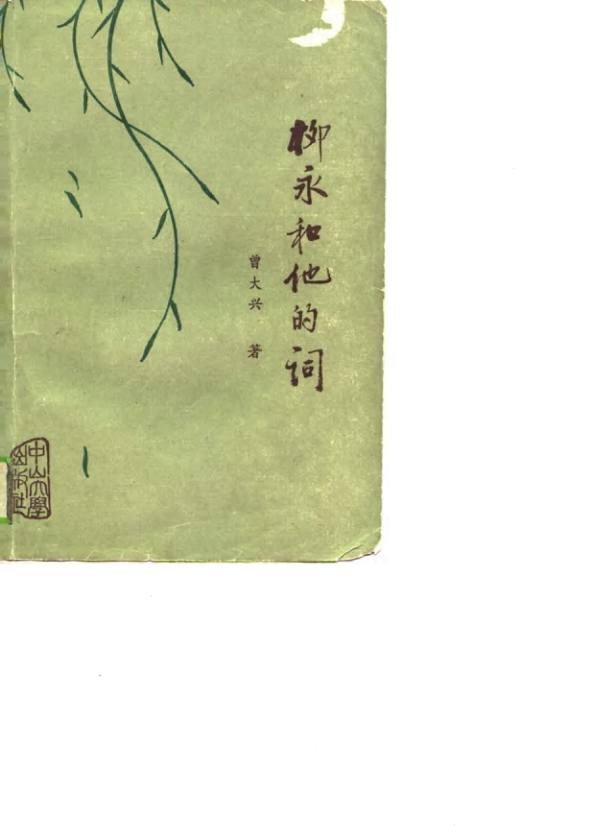 柳永和他的词
曾大兴 著
中山大學出版社